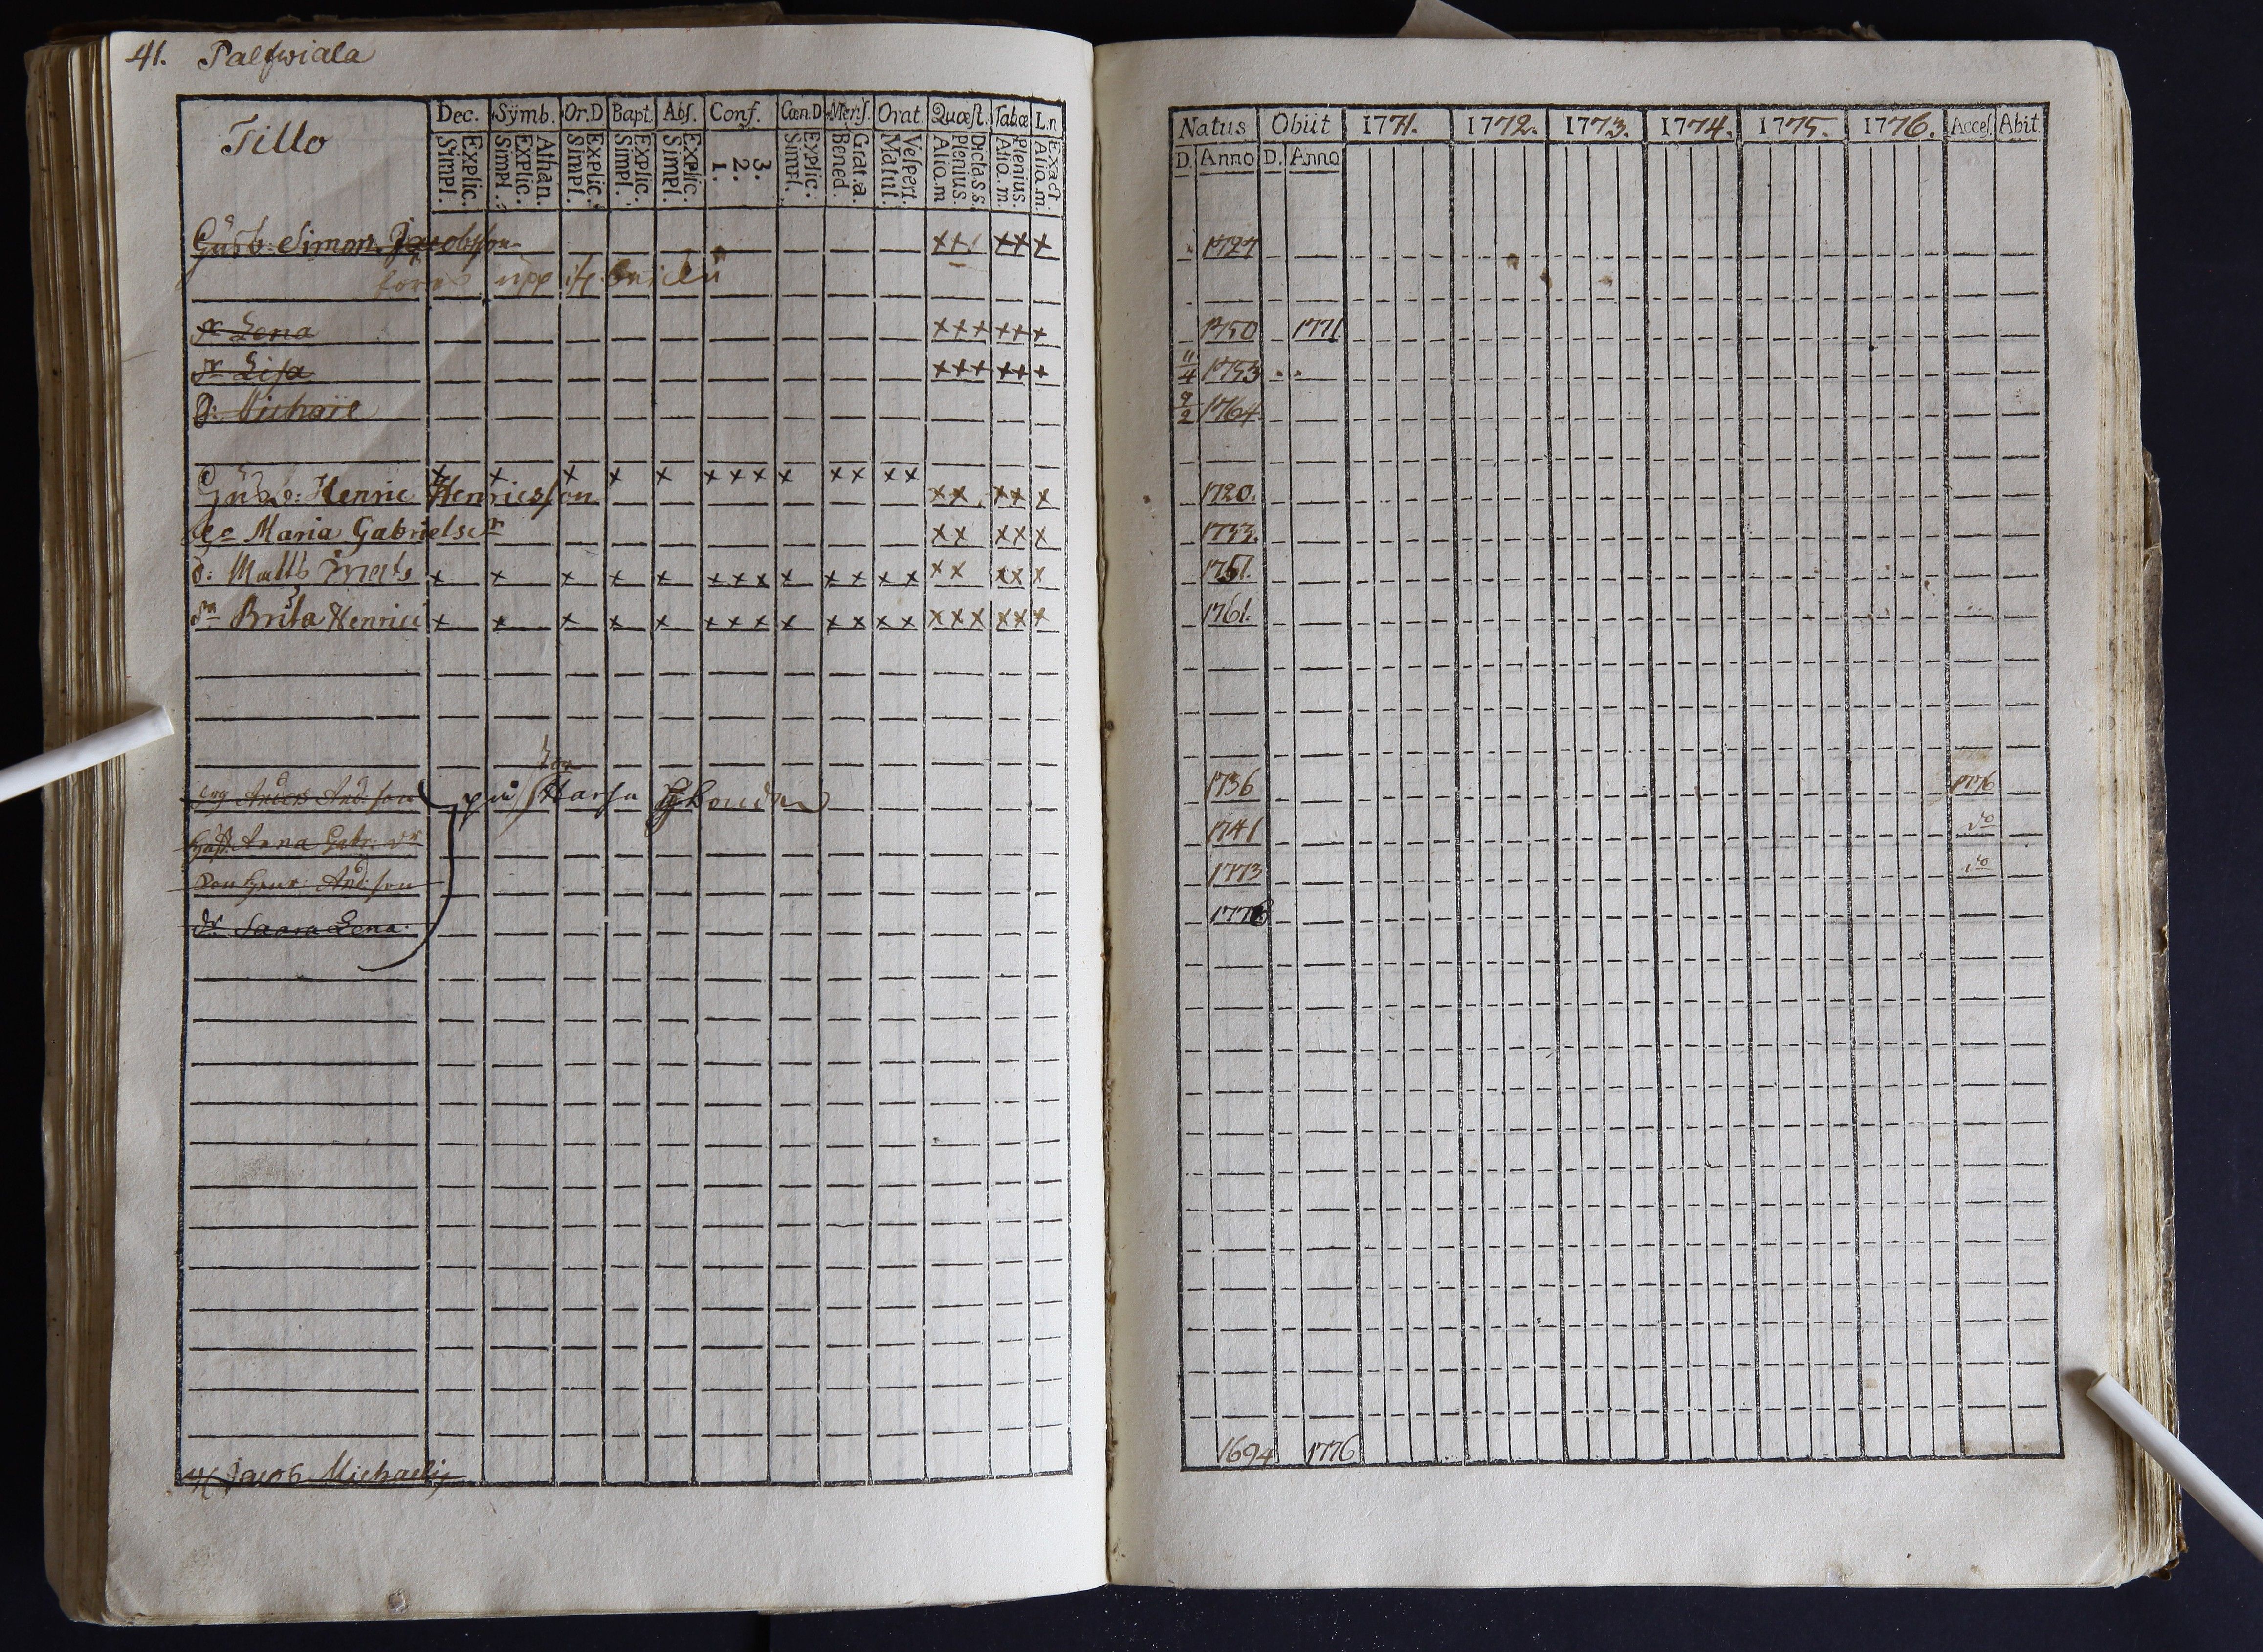 41. Palfwiala
Tillo
Dec. Symb. Or.D Bapt. Abs. Conf. Cœn.D Mens. Orat. Quæst. Tab.œ L.n
Simpl. Explic. Simpl. Explic. Athan. Simpl. Explic. Simpl. Explic. Simpl. Explic. 1. 2. 3. Simpl. Explic. Bened. Grat.a. Matut. Vespert. Alio.m Plenius. Dicta s.s. Alio.m. Plenius. Alio.m. Exact
Natus Obiit 1771. 1772. 1773. 1774. 1775. 1776. Acces. Abit.
D. Anno D. Anno
Simon Jacobsson x x x x x 1727
upp
dr Lena x x x x x x 1750 1771.
dr Lisa x x x x x x 11/4 1753
S: Michaël 9/2 1764
x x x x x x x x x x x x
Henric Henricsson x x x x x 1720.
Maria Gabrielsdr x x x x x 1733.
d: Matts x x x x x x x x x x x x x x x x x x 1751.
Brita Henrici x x x x x x x x x x x x x x x x x x 1761.
Anders And:son på 1736 1776
Anna Gabr: dr 1741 do
Son Henr: And:son 1773 do
dr Saara Lena 1776
Jacob Michaelis 1694 1776